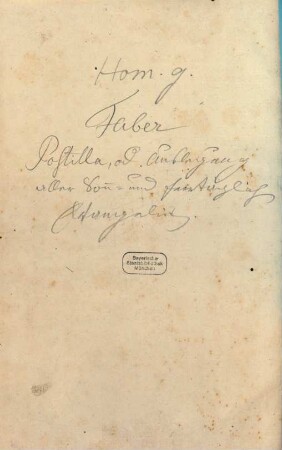 Hom. g.
Faber
Postilla, od. Auslegung
aller Soñ- und feiertäglich
Evangelien.
Bayerische
Staatsbibliothek
München